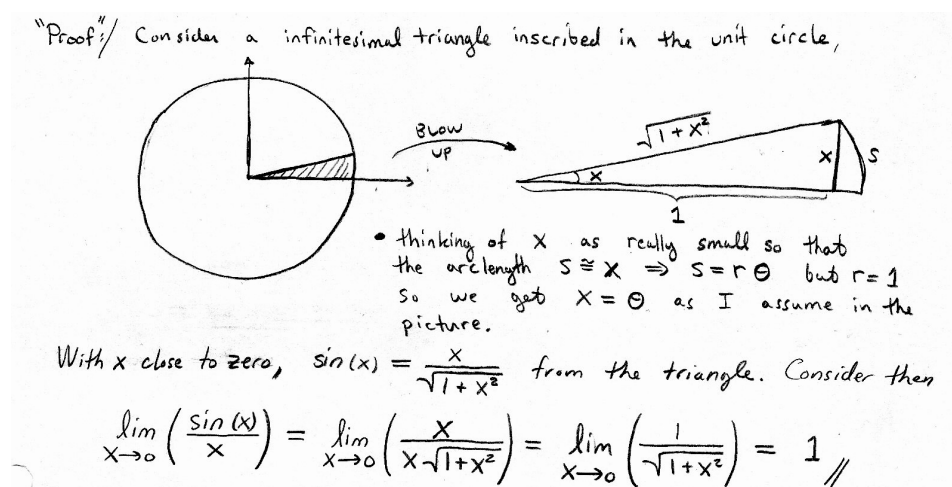 "Proof":/ Consider a infinitesimal triangle inscribed in the unit circle,
BLOW
UP
√(1 + x²)
x
x
s
1
• thinking of x as really small so that
the arclength s ≅ x ⇒ s = r θ but r = 1
So we get x = θ as I assume in the
picture.
With x close to zero, sin(x) = x / √(1 + x²) from the triangle. Consider then
lim x→0 (sin(x) / x) = lim x→0 (x / (x √(1+x²))) = lim x→0 (1 / √(1+x²)) = 1 //